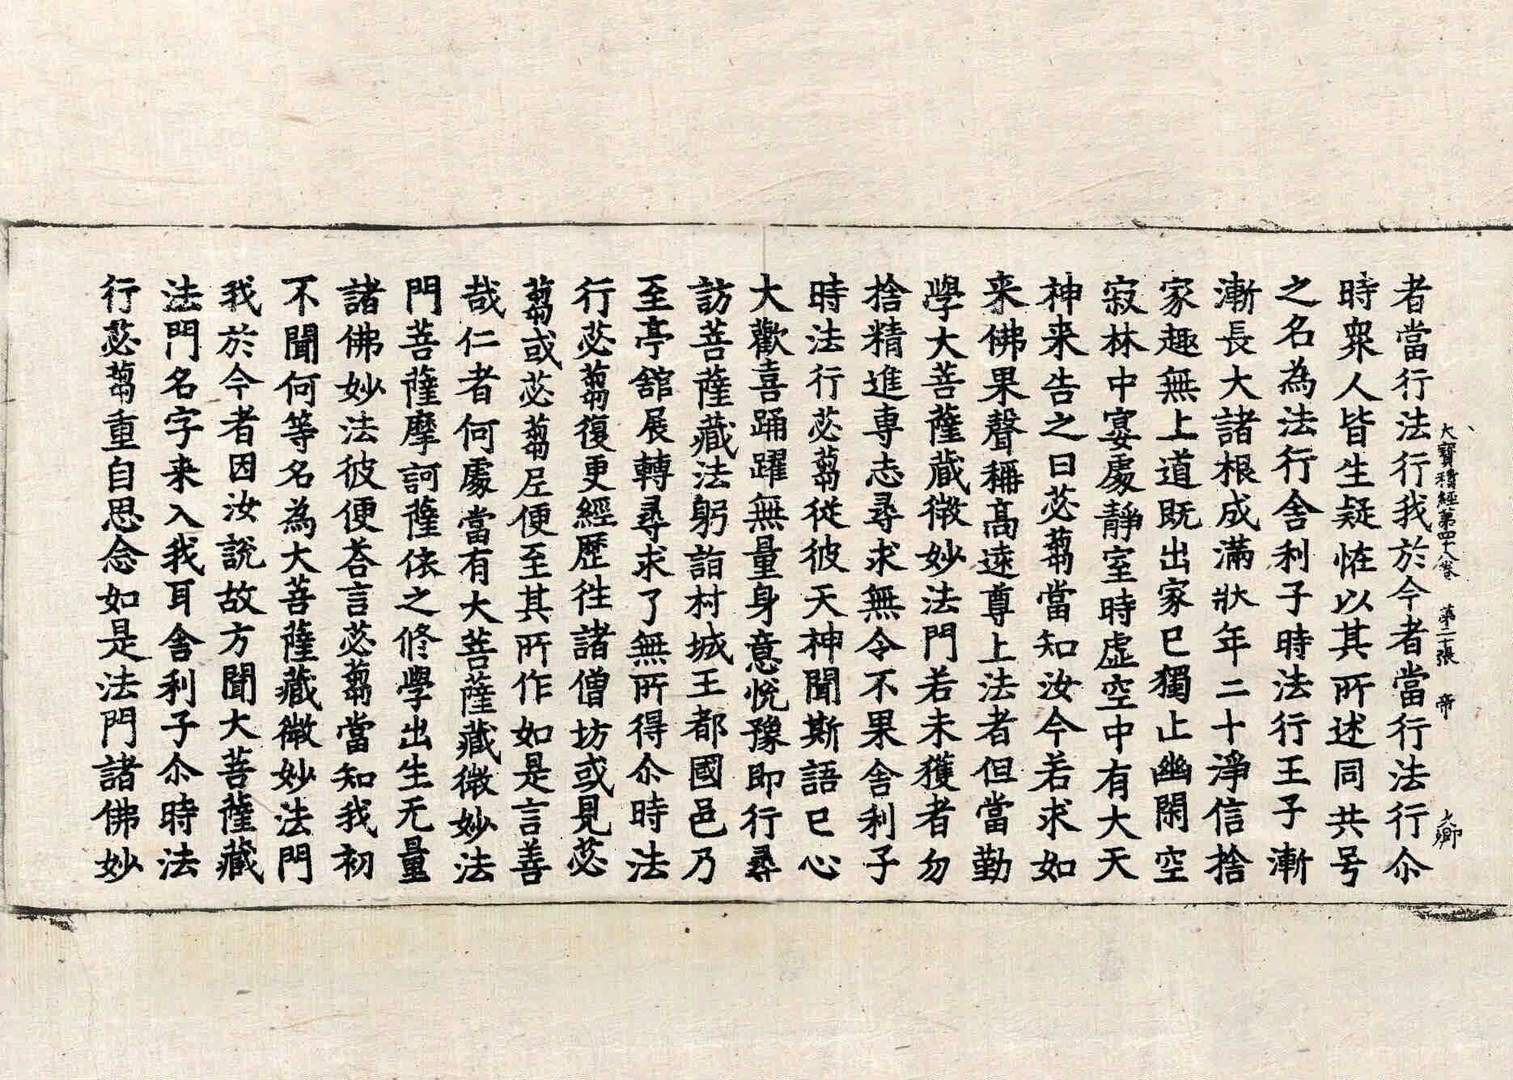 大寶積經第四十八卷 第二張 帝 大卿
者當行法行我於今者當行法行尒
時衆人皆生疑恠以其所述同共号
之名為法行舍利子時法行王子漸
漸長大諸根成滿狀年二十淨信捨
家趣無上道既出家已獨止幽閑空
寂林中宴處靜室時虛空中有大天
神来告之曰苾蒭當知汝今若求如
来佛果聲稱高遠尊上法者但當勤
學大菩薩藏微妙法門若未獲者勿
捨精進専志尋求無令不果舍利子
時法行苾蒭從彼天神聞斯語已心
大歡喜踊躍無量身意悅豫即行尋
訪菩薩藏法躬詣村城王都國邑乃
至亭舘展轉尋求了無所得尒時法
行苾蒭復更經歷往諸僧坊或見苾
蒭或苾蒭尼便至其所作如是言善
哉仁者何處當有大菩薩藏微妙法
門菩薩摩訶薩依之修學出生无量
諸佛妙法彼便荅言苾蒭當知我初
不聞何等名為大菩薩藏微妙法門
我於今者因汝說故方聞大菩薩藏
法門名字来入我耳舍利子尒時法
行苾蒭重自思念如是法門諸佛妙